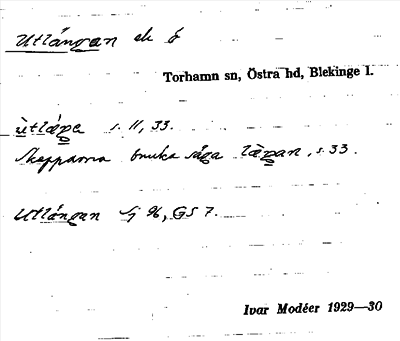 Utlångan ek ö
Torhamn sn, Östra hd, Blekinge l.
ùtlåŋa s. 11, 33.
Skepparna bruka säga låŋan, s. 33.
Utlångan Sj 96, GS 7.
Ivar Modéer 1929—30